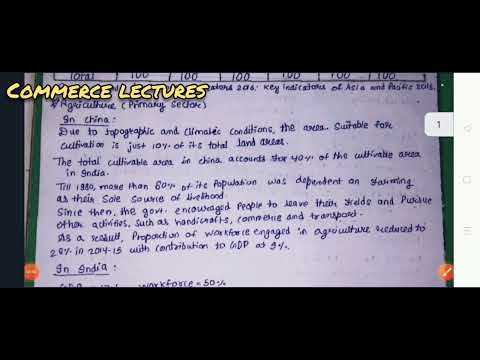 Total 100 100 100 100 100 100
COMMERCE LECTURES
2016. Key Indicators of Asia and Pacific 2016.
Agriculture (Primary Sector)
In China:
Due to topographic and Climatic Conditions, the area Suitable for
cultivation is just 10% of its total land areas.
The total cultivable area in china accounts for 40% of the cultivable area
in India.
Till 1980, more than 80% of its Population was dependent on farming
as their Sole Source of livelihood.
Since then, the govt. encouraged People to leave their fields and Pursue
other activities, Such as handicrafts, commerce and transport.
As a result, Proportion of workforce engaged in agriculture reduced to
28% in 2014-15 with contribution to GDP at 9%.
In India:
workforce = 50%
1